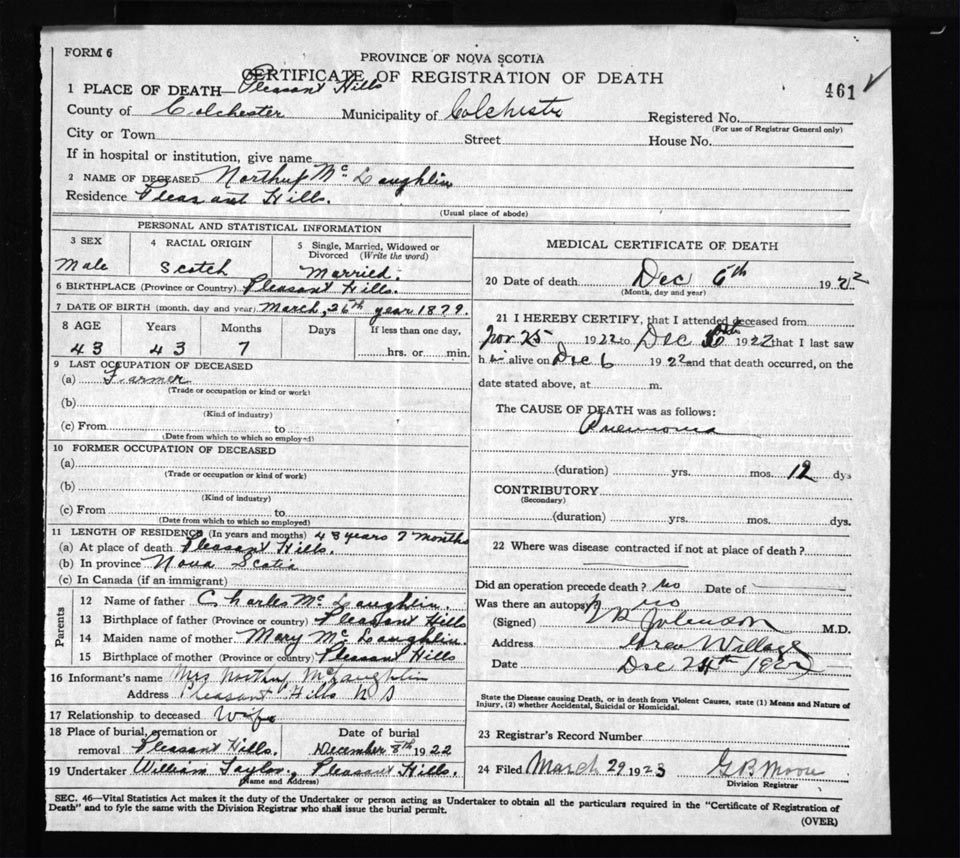 FORM 6
PROVINCE OF NOVA SCOTIA
CERTIFICATE OF REGISTRATION OF DEATH
461 ✓
1 PLACE OF DEATH— Pleasant Hills
County of Colchester Municipality of Colchester Registered No.
(For use of Registrar General only)
City or Town Street House No.
If in hospital or institution, give name
2 NAME OF DECEASED Northup Mc Laughlin
Residence Pleasant Hills.
(Usual place of abode)
PERSONAL AND STATISTICAL INFORMATION
3 SEX 4 RACIAL ORIGIN 5 Single, Married, Widowed or Divorced (Write the word)
Male Scotch Married.
6 BIRTHPLACE (Province or Country) Pleasant Hills.
7 DATE OF BIRTH (month, day and year) March, 26th year 1879.
8 AGE Years Months Days If less than one day,
43 43 7 hrs. or min.
9 LAST OCCUPATION OF DECEASED
(a) Farmer
(Trade or occupation or kind or work)
(b)
(Kind of industry)
(c) From to
(Date from which to which so employed)
10 FORMER OCCUPATION OF DECEASED
(a)
(Trade or occupation or kind of work)
(b)
(Kind of industry)
(c) From to
(Date from which to which so employed)
11 LENGTH OF RESIDENCE (In years and months) 43 years 7 months
(a) At place of death Pleasant Hills.
(b) In province Nova Scotia
(c) In Canada (if an immigrant)
Parents
12 Name of father Charles Mc Laughlin.
13 Birthplace of father (Province or country) Pleasant Hills
14 Maiden name of mother Mary Mc Laughlin.
15 Birthplace of mother (Province or country) Pleasant Hills
16 Informant's name Mrs Northup McLaughlin
Address Pleasant Hills N S
17 Relationship to deceased Wife
18 Place of burial, cremation or removal Pleasant Hills.
Date of burial December 8th 1922
19 Undertaker William Taylor, Pleasant Hills.
(Name and Address)
MEDICAL CERTIFICATE OF DEATH
20 Date of death Dec 6th 1922
(Month, day and year)
21 I HEREBY CERTIFY, that I attended deceased from
Nov 25 1922 to Dec 1922 that I last saw
h alive on Dec 6 1922 and that death occurred, on the
date stated above, at m.
The CAUSE OF DEATH was as follows:
Pneumonia
(duration) yrs. mos. 12 dys
CONTRIBUTORY
(Secondary)
(duration) yrs. mos. dys.
22 Where was disease contracted if not at place of death?
Did an operation precede death? no Date of
Was there an autopsy no
(Signed) Johnson M.D.
Address Great Village
Date Dec 24th
State the Disease causing Death, or in death from Violent Causes, state (1) Means and Nature of
Injury, (2) whether Accidental, Suicidal or Homicidal.
23 Registrar's Record Number
24 Filed March 29 1923 G B Moore
Division Registrar
SEC. 46—Vital Statistics Act makes it the duty of the Undertaker or person acting as Undertaker to obtain all the particulars required in the "Certificate of Registration of
Death" and to fyle the same with the Division Registrar who shall issue the burial permit.
(OVER)